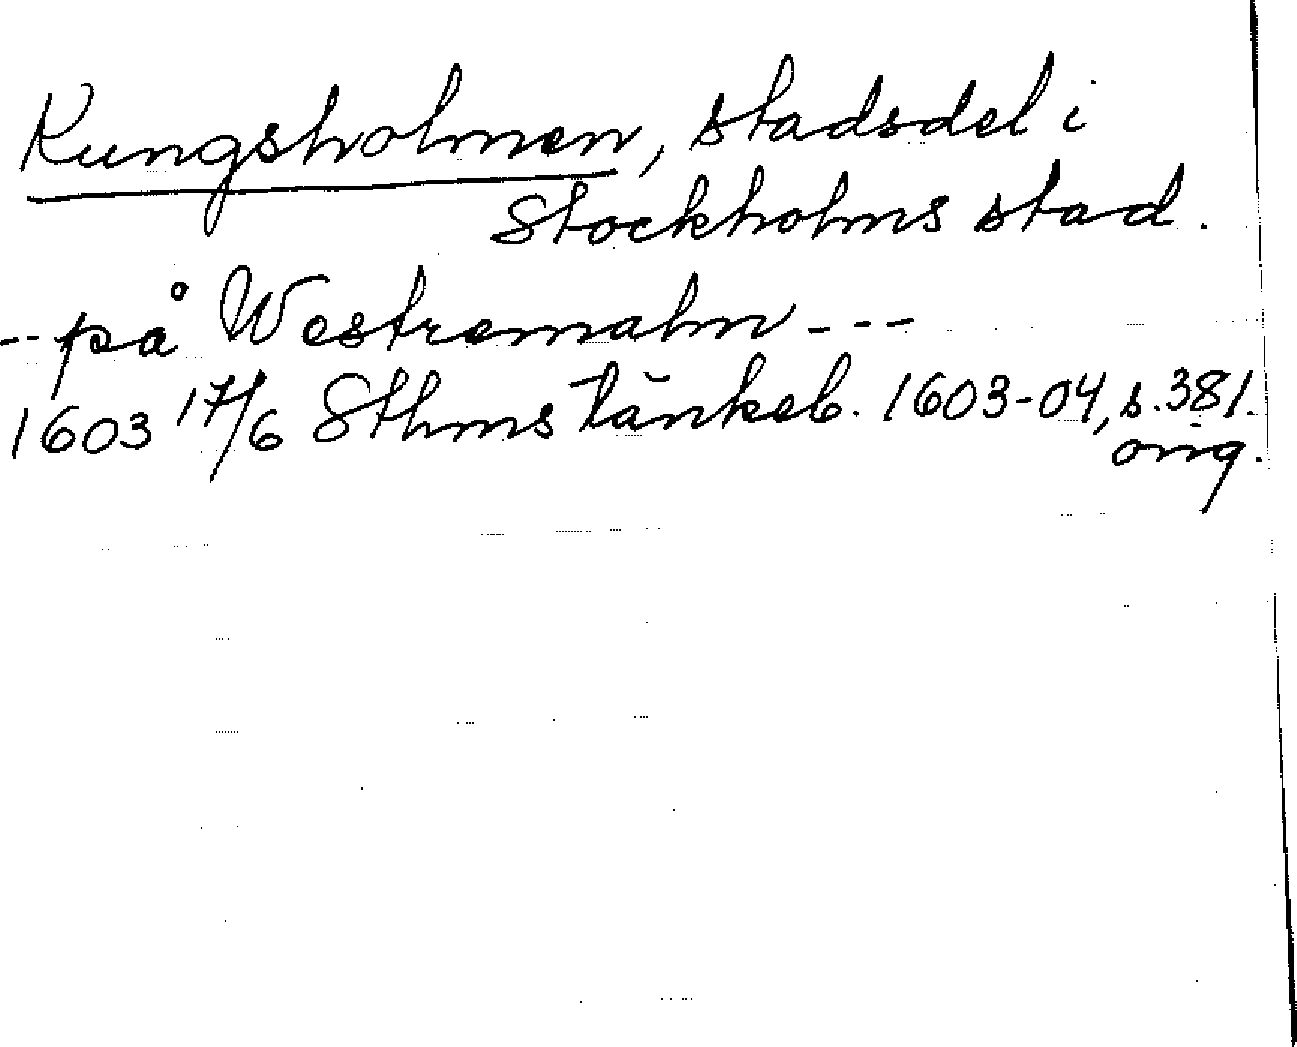 Kungsholmen, stadsdel i
Stockholms stad.
-- på Westremalm ---
1603 17/6 Sthms tänkeb. 1603-04, s. 381.
orig.